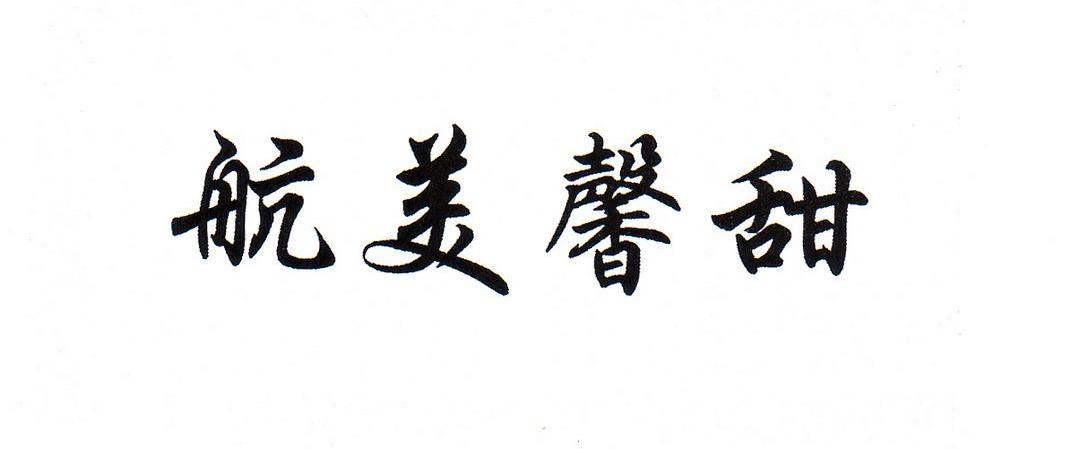 航美馨甜